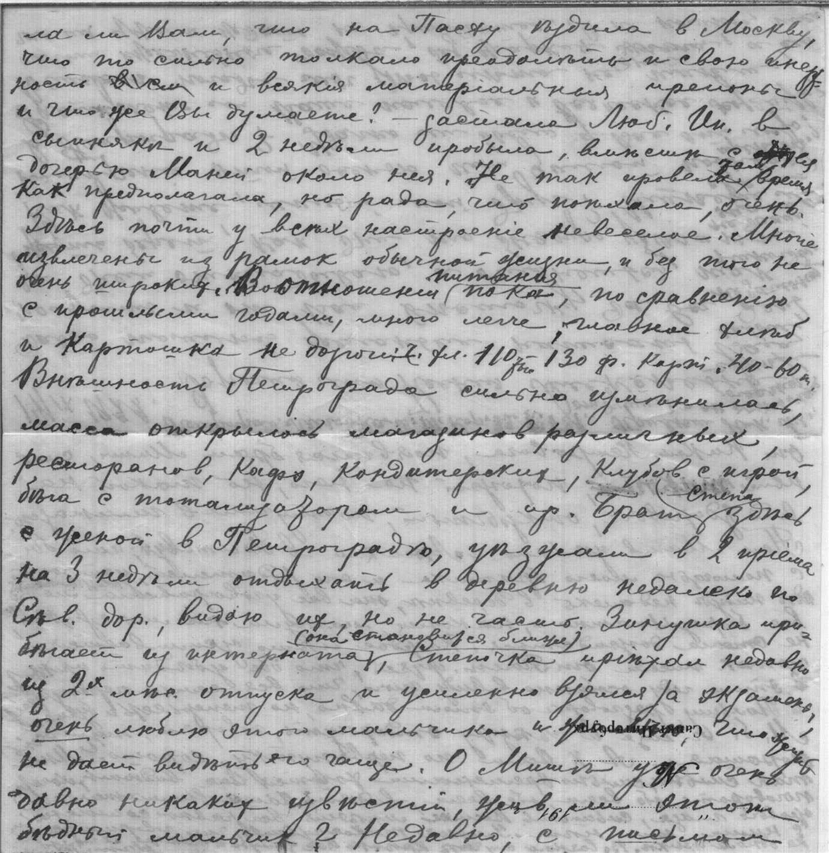 ла ли Вам, что на Пасху ѣздила в Москву,
что то сильно толкало преодолѣть и свою инерт-
ность и всякія матеріальныя препоны
и что же Вы думаете? — застала Люб. Ив. в
сыпнякѣ и 2 недѣли пробыла, вмѣстѣ с ея
дочерью Маней около нея. Не так провела там время
как предполагала, но рада, что поѣхала, очень.
Здѣсь почти у всѣх настроеніе невеселое. Многіе
извлечены из рамок обычной жизни, и без того не
очень широких. В отношеніи питанія пока, по сравненію
с прошлыми годами, много легче, главное хлѣб
и картошка не дороги: хл. 110 130 ф. карт. 40-60 т.
Внѣшность Петрограда сильно измѣнилась,
масса открылось магазинов различных,
ресторанов, кафэ, кондитерских, клубов с игрой,
бѣга с тотализатором и пр. Брат Степа здѣсь
с женой в Петроградѣ, уѣзжали в 2 пріема
на 3 недѣли отдыхать в деревню недалеко по
Сѣв. дор., видаю их, но не часто. Зинушка при-
бѣгает из интерната, (она становится ближе) Степочка пріѣхал недавно
из 2х мѣс. отпуска и усиленно взялся за экзамены,
очень люблю этого мальчика и что
не дает видѣть его чаще. О Мишѣ уж очень
давно никаких извѣстій, жив ли этот
бѣдный мальчик? Недавно, с письмом